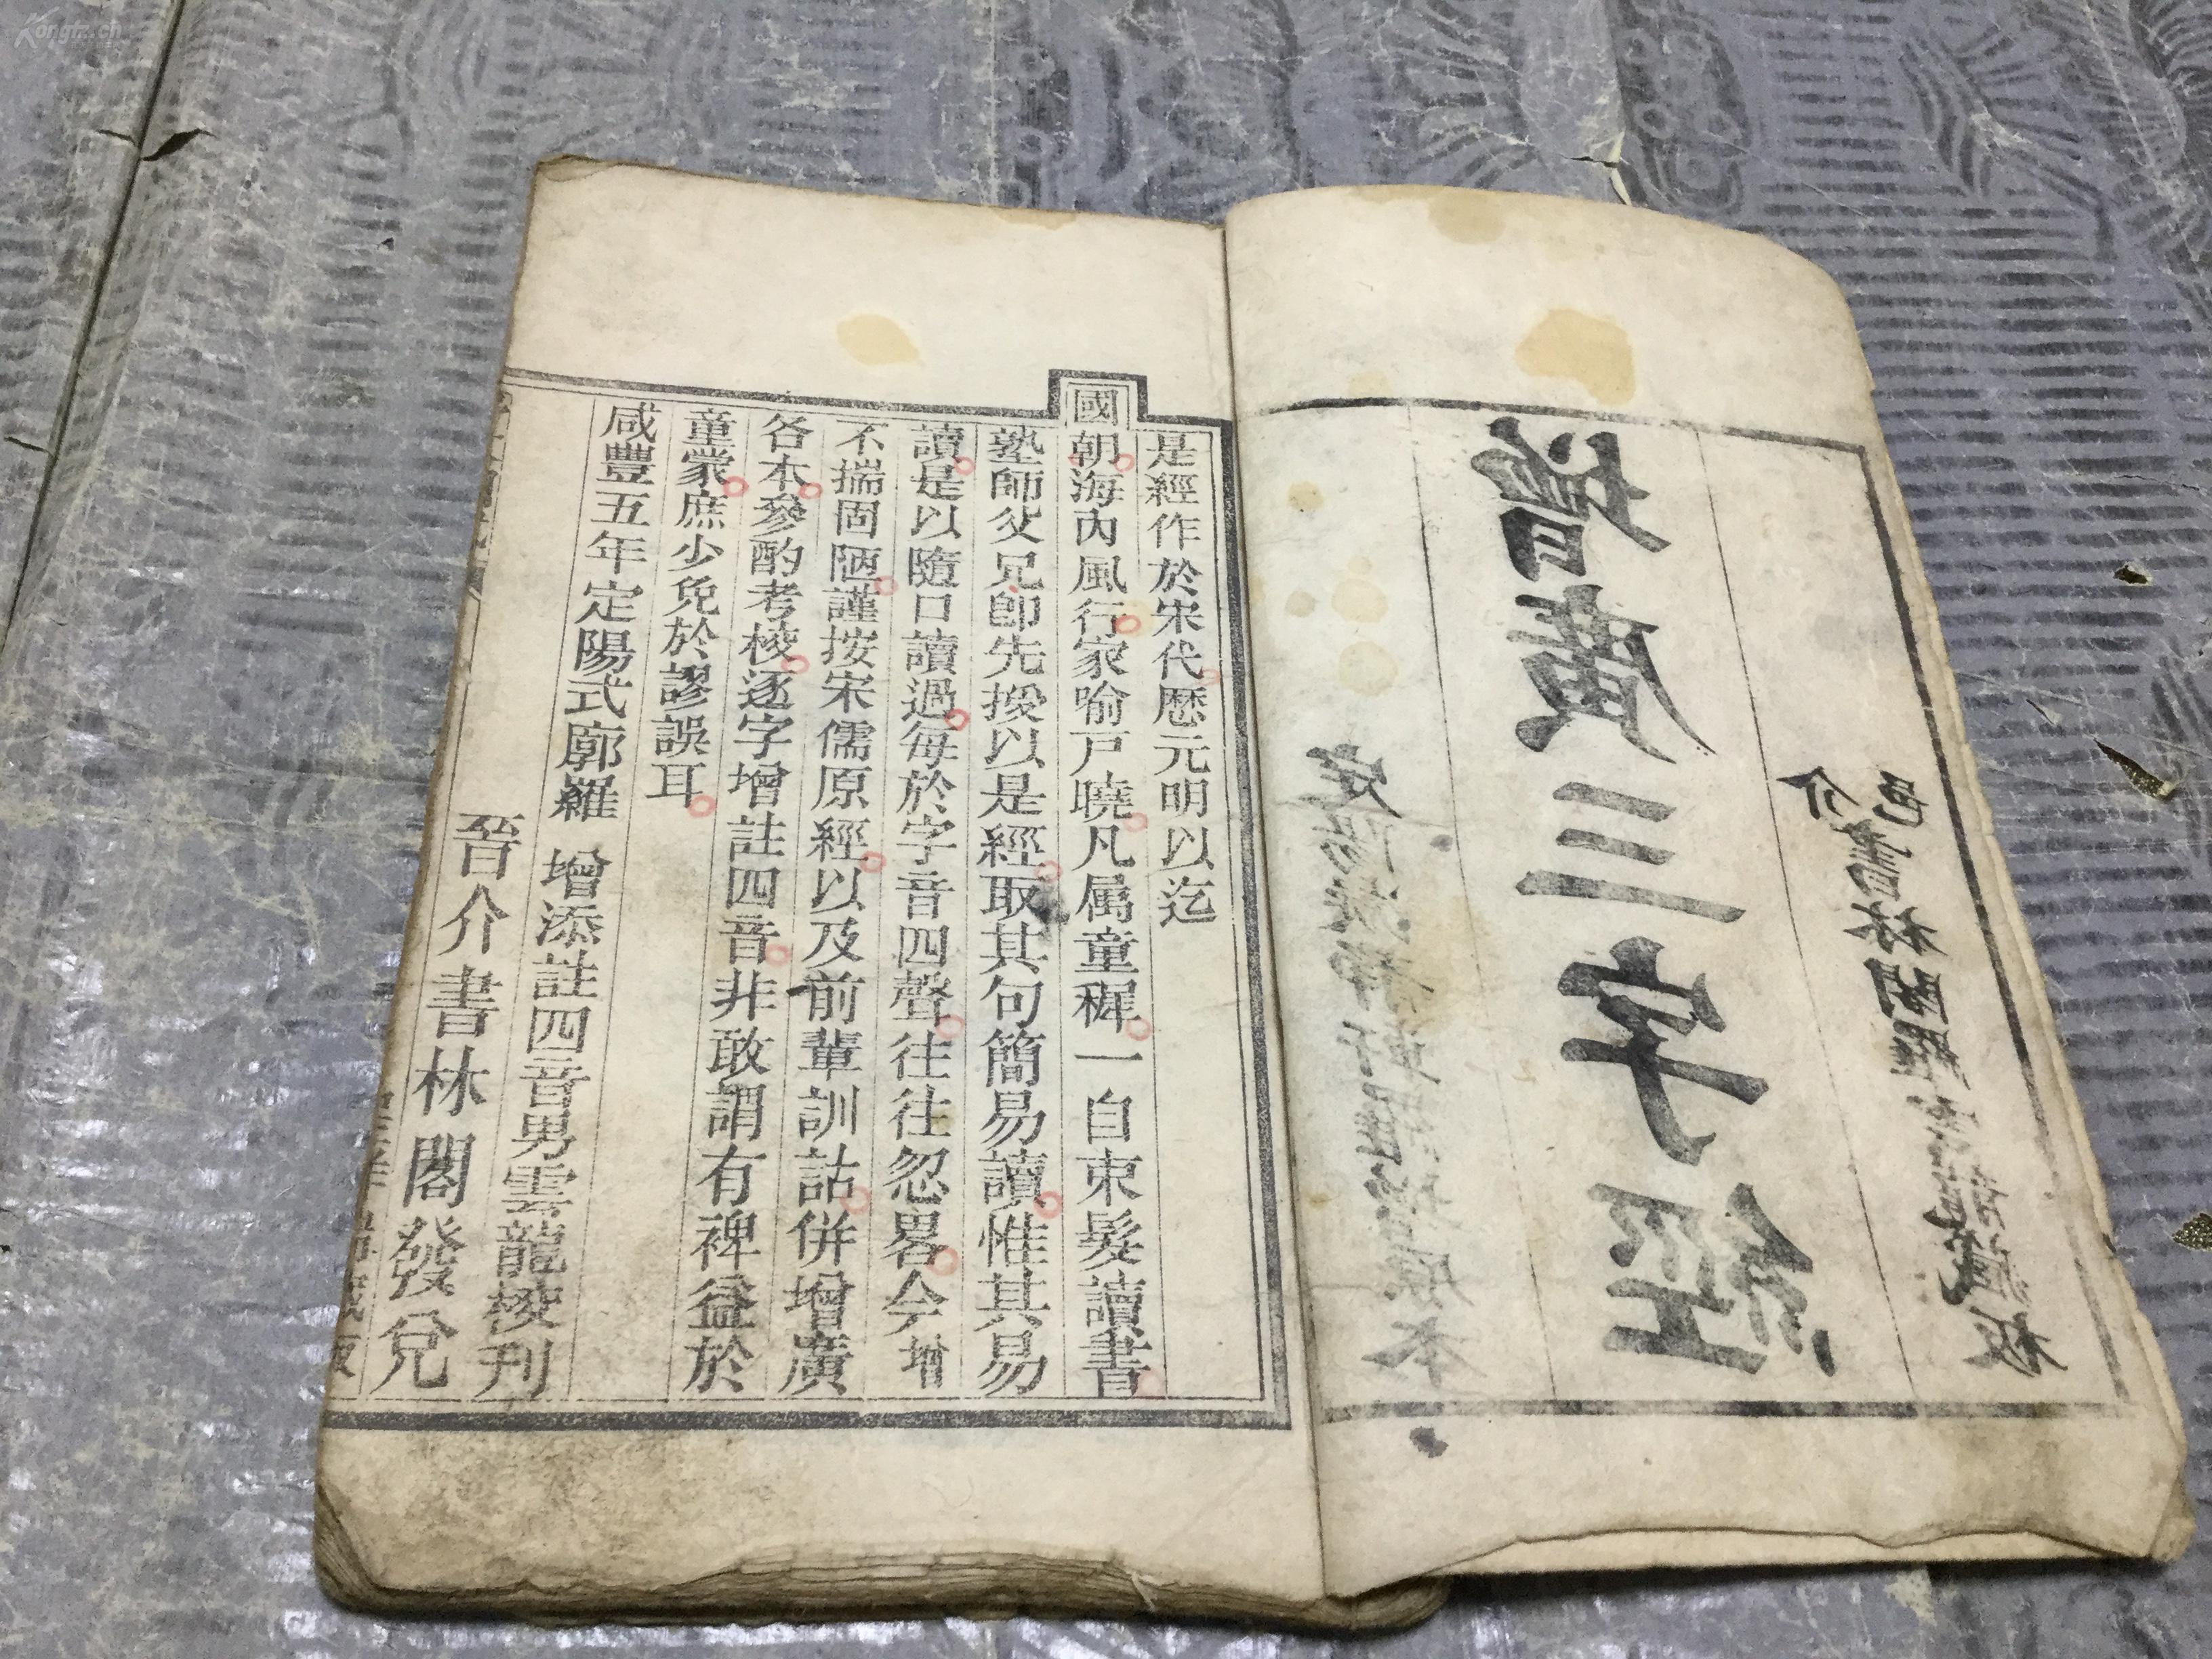 增廣三字經
是經作於宋代歷元明以迄
國朝海內風行家喻戸曉凡属童穉一自束髮讀書
塾師父兄卽先授以是經取其句簡易讀惟其易
讀是以隨口讀過每於字音四聲往往忽畧今增
不揣固陋謹按宋儒原經以及前輩訓詁併增廣
各本參酌考校逐字增註四音非敢謂有裨益於
童蒙庶少免於謬誤耳
咸豐五年定陽式廓羅 增添註四音男雲龍校刊
晉介書林閣發兌
Kongfz.cn